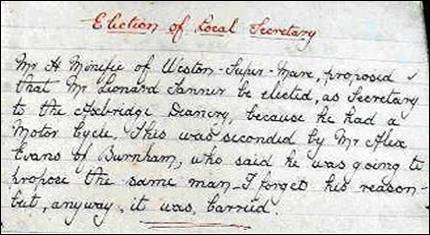 Election of Local Secretary
Mr H Minific of Weston-Super-Mare, proposed
that Mr Leonard Tanner be elected, as Secretary
to the Axbridge Deanery, because he had a
Motor Cycle. This was seconded by Mr Alex
Evans of Burnham, who said he was going to
propose the same man - I forget his reason -
but, anyway, it was, carried.